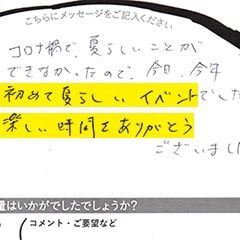 こちらにメッセージをご記入ください
コロナ禍で、夏らしいことが
できなかったので、今日、今年
初めて夏らしい イベントでした
楽しい時間をありがとう
ございました
量はいかがでしたでしょうか?
コメント・ご要望など